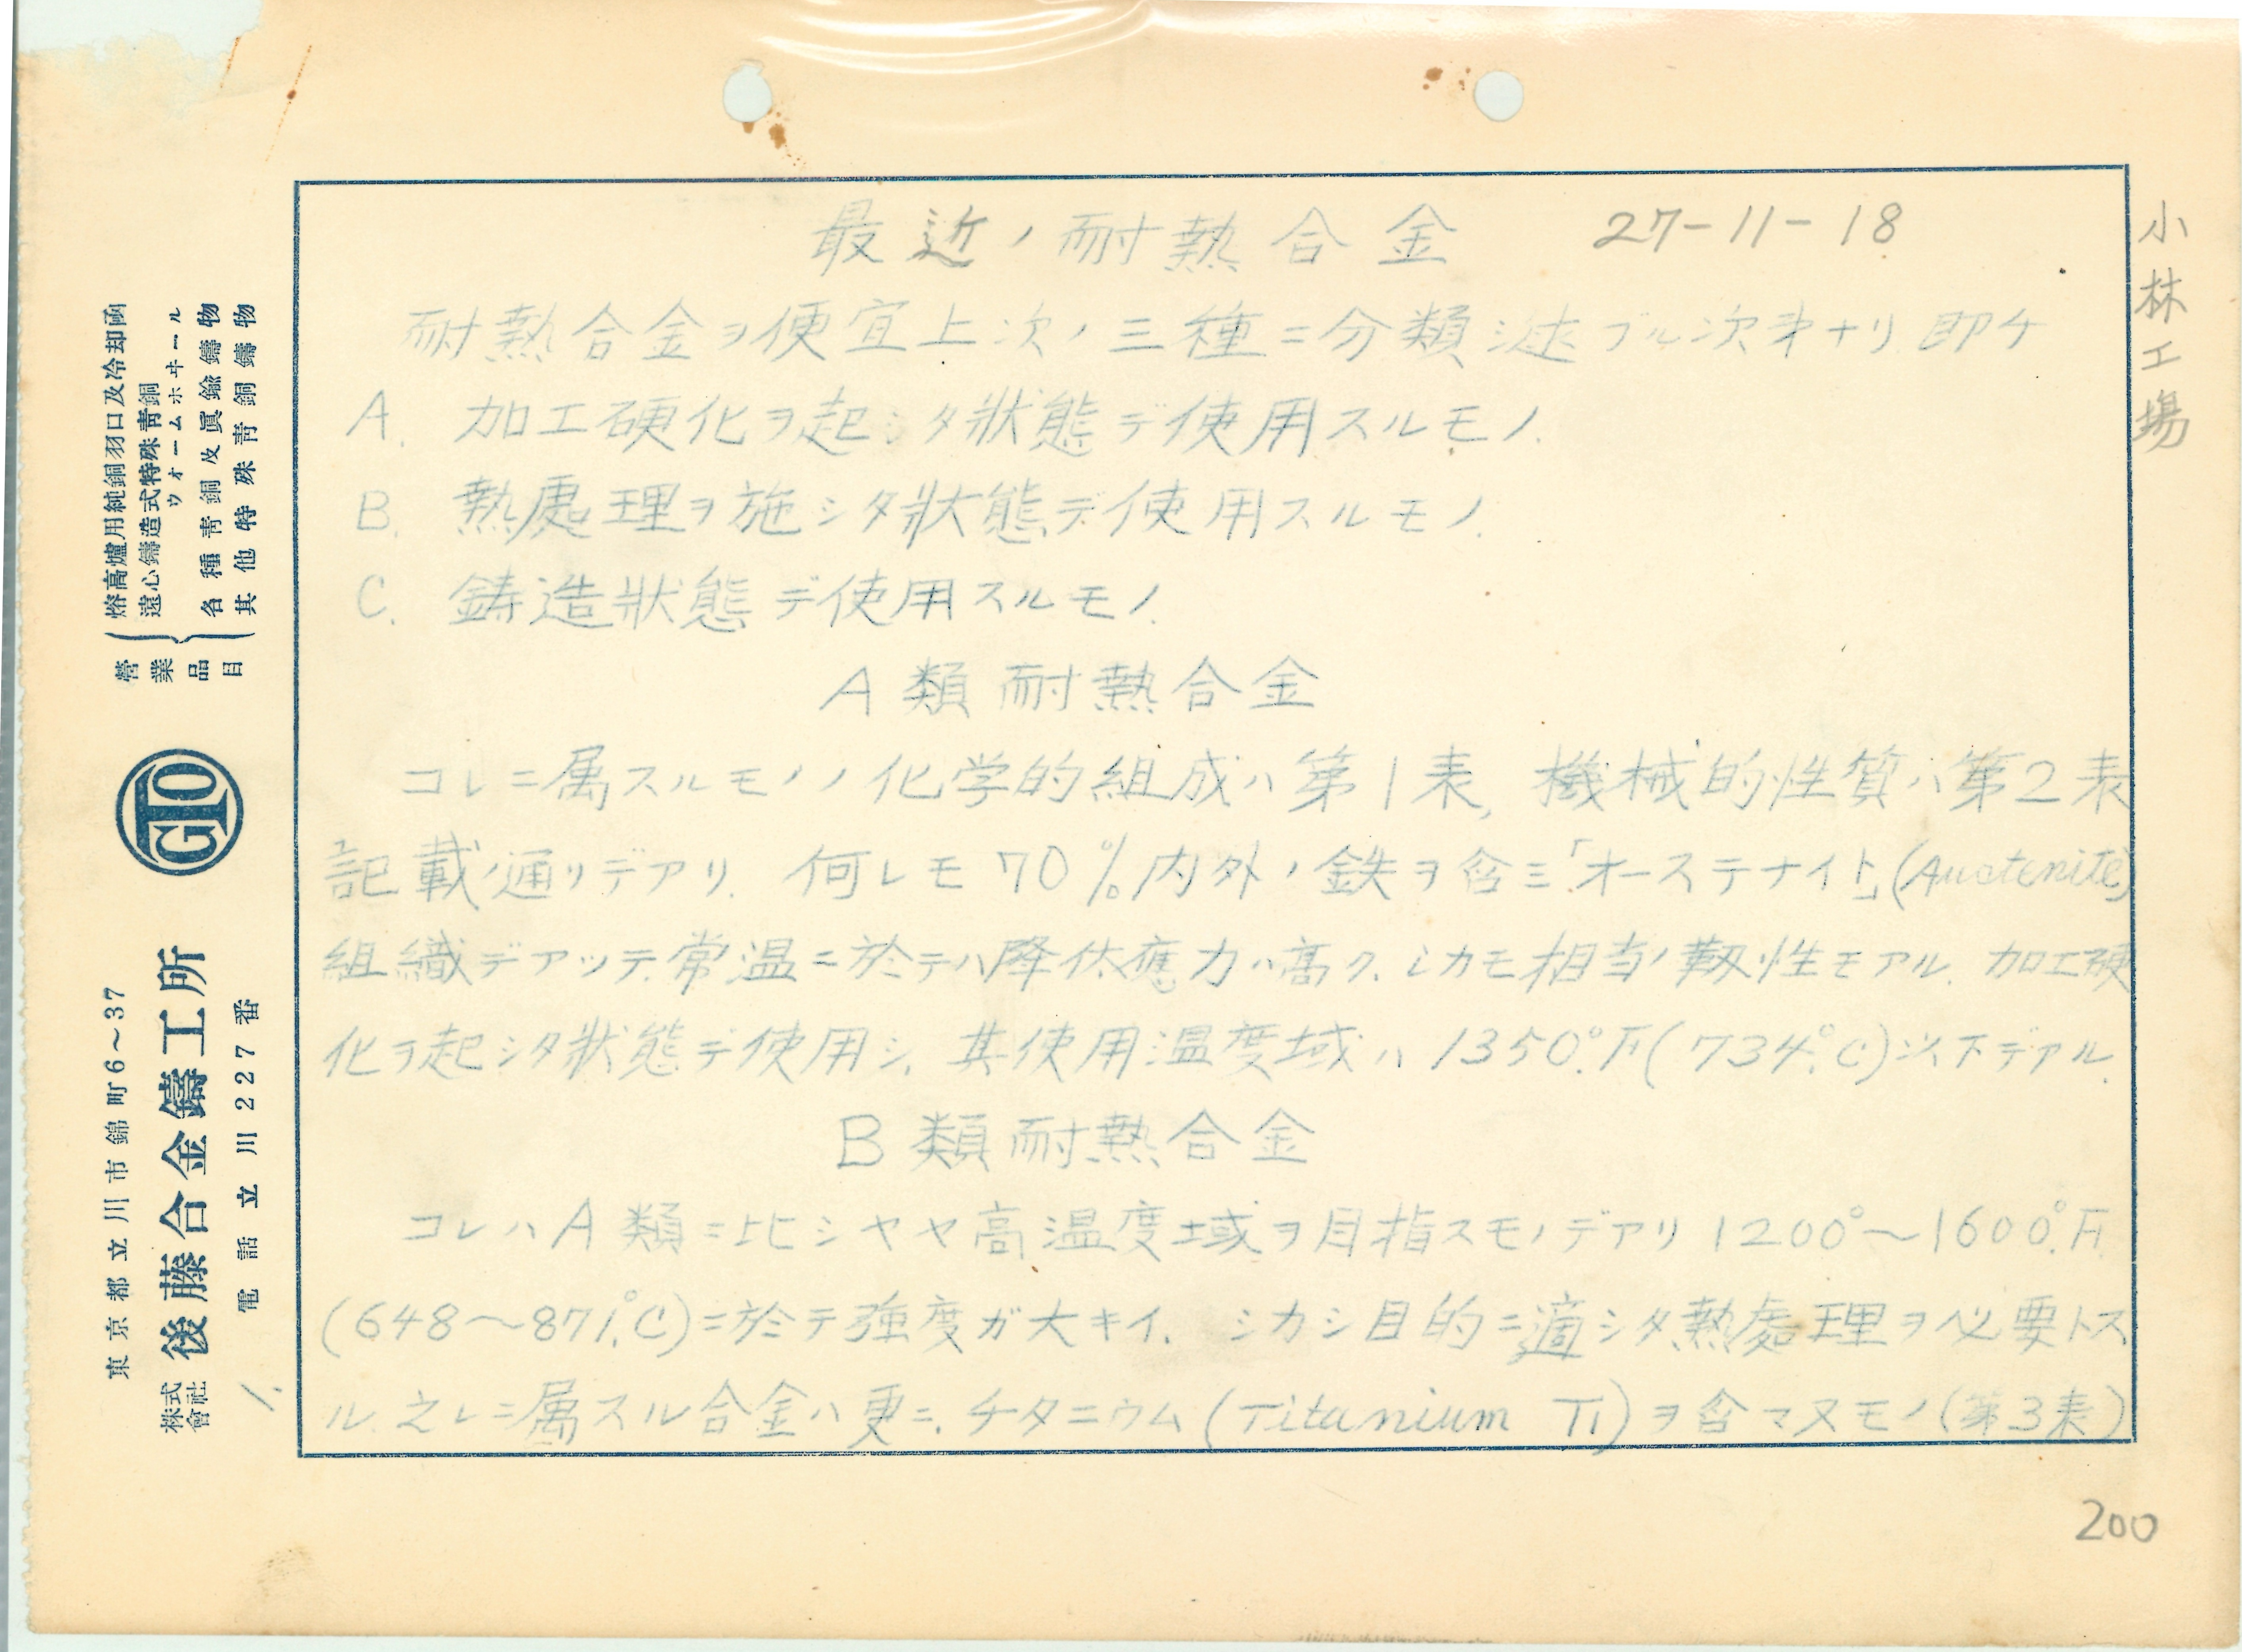 最近ノ耐熱合金 27-11-18
小林工場
耐熱合金ヲ便宜上次ノ三種ニ分類シ述ブル次第ナリ 即チ
A. 加工硬化ヲ起シタ状態デ使用スルモノ.
B. 熱處理ヲ施シタ状態デ使用スルモノ.
C. 鋳造狀態デ使用スルモノ.
A類耐熱合金
コレニ属スルモノノ化学的組成ハ第1表, 機械的性質ハ第2表
記載ノ通リデアリ. 何レモ70%内外ノ鉄ヲ含ミ「オーステナイト」(Auctenite)
組織デアッテ.常温ニ於テハ降伏應力ハ高ク.シカモ相当ノ靱性モアル. 加工硬
化ヲ起シタ狀態デ使用シ. 其使用温度域ハ1350°.F(734°.C)以下デアル.
B類耐熱合金
コレハA類ニ比シヤヤ高温度域ヲ目指スモノデアリ1200°～1600°.F.
(648～871°.C)ニ於テ強度ガ大キイ. シカシ目的ニ適シタ熱處理ヲ必要トス
ル.之レニ属スル合金ハ更ニ.チタニウム(Titanium Ti)ヲ含マヌモノ(第3表)
200
1.
營業品目
熔高爐用純銅羽口及冷却函
遠心鑄造式特殊靑銅
ウオームホヰール
各種靑銅及眞鍮鑄物
其他特殊靑銅鑄物
GTO
東京都立川市錦町6～37
株式會社 後藤合金鑄工所
電話立川227番